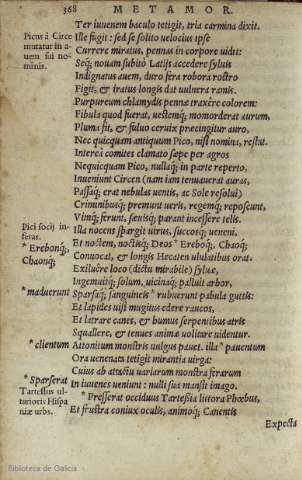 368 METAMOR.
Ter iuuenem baculo tetigit, tria carmina dixit.
Picus à Circe
mutatur in a-
uem sui no-
minis.
Ille fugit: sed se solito velocius ipse
Currere miratus, pennas in corpore vidit:
Seq́; nouam subitò Latijs accedere syluis
Indignatus auem, duro fera robora rostro
Figit, & iratus longis dat uulnera ramis.
Purpureum chlamydis pennæ traxere colorem:
Fibula quod fuerat, uestemq́; momorderat aurum,
Pluma fit, & fuluo ceruix præcingitur auro,
Nec quicquam antiquum Pico, nisi nomina, restat.
Intereà comites clamato sæpe per agros
Nequicquam Pico, nullaq́; in parte reperto,
Inueniunt Circen (nam iam tenuauerat auras,
Passaq́; erat nebulas uentis, ac Sole resolui)
Criminibusq́; premunt ueris, regemq́; reposcunt,
Vimq́; ferunt, sæuisq́; parant incessere telis.
Pici socij in
feras.
Illa nocens spargit uirus, succosq́; ueneni,
* Erebonq́;,
Chaonq́;
Et noctem, noctisq́; Deos * Ereboq́, Chaoq́;
Conuocat, & longis Hecaten ululatibus orat.
Exiluêre loco (dictu mirabile) syluæ,
Ingemuitq́; solum, uicinaq́; palluit arbor,
* maduerunt
Sparsaq́; sanguineis * rubuerunt pabula guttis:
Et lapides uisi mugitus edere raucos,
Et latrare canes, & humus serpentibus atris
Squallere, & tenues animæ uolitare uidentur.
* clientum
Attonitum monstris uulgus pauet. illa * pauentum
Ora uenenata tetigit mirantia uirga:
Cuius ab attactu uariarum monstra ferarum
In iuuenes ueniunt: nulli sua mansit imago.
* Sparserat
Tartessus ul-
terioris Hispa
niæ urbs.
* Presserat occiduus Tartessia littora Phœbus,
Et frustra coniux oculis, animoq́; Canentis
Expecta
Biblioteca de Galicia